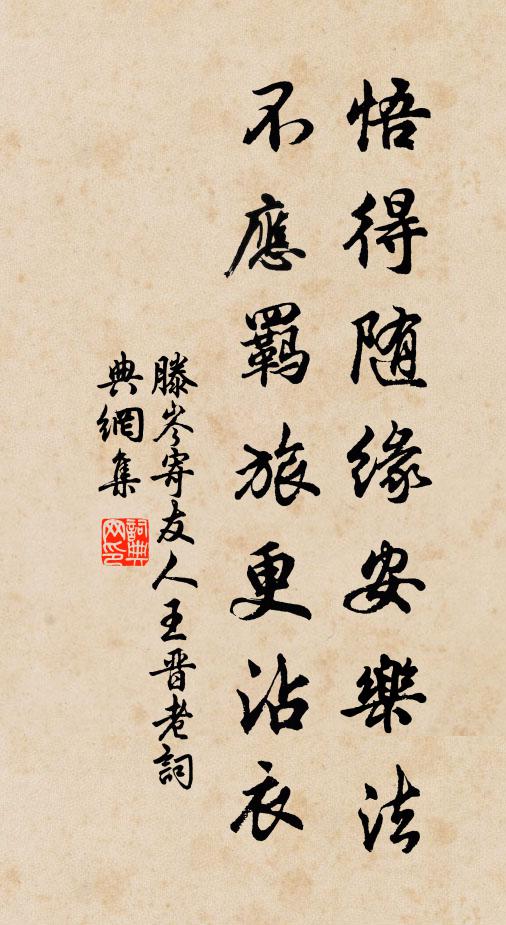 悟得随緣安樂法
不應羈旅更沾衣
滕岑寄友人王晋老詞
典網集
詞典网印